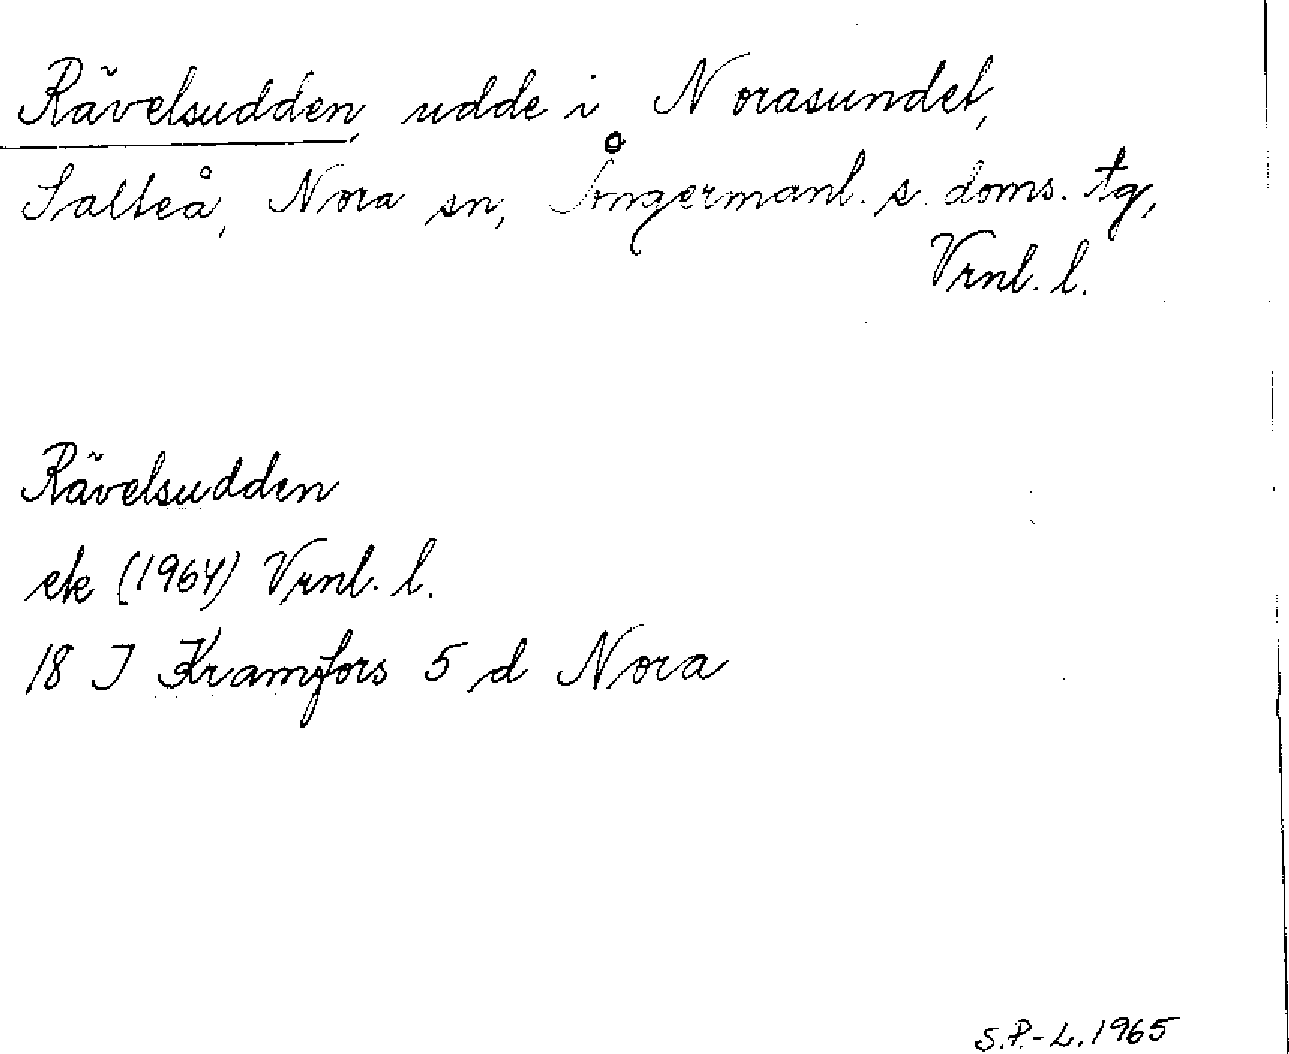 Rävelsudden, udde i Norasundet,
Salteå, Nora sn, Ångermanl. s. doms. tg,
Vrnl. l.
Rävelsudden
ek (1964) Vrnl. l.
18 I Kramfors 5 d Nora
S.P.-L. 1965